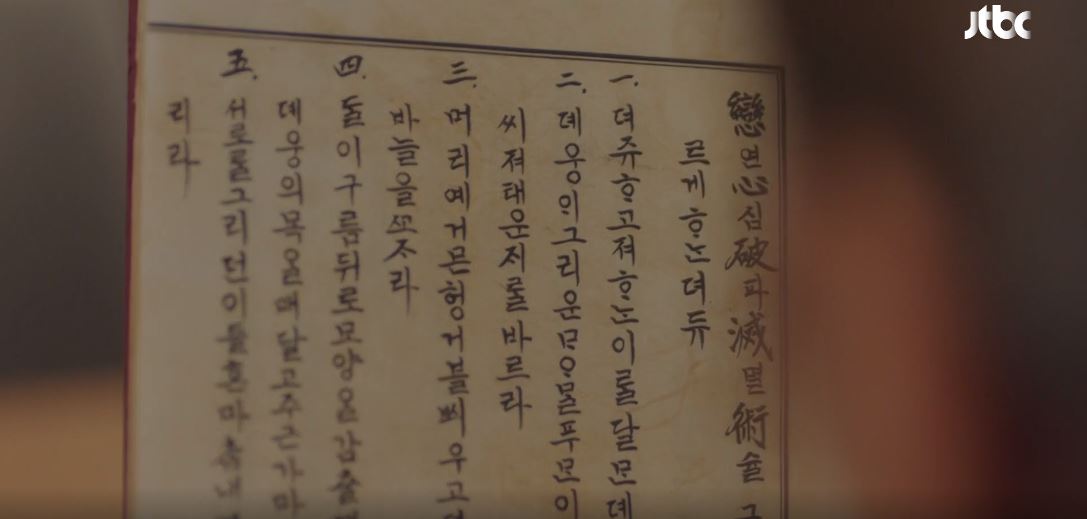 jtbc
戀연心심破파滅멸術술 그
르게ᄒᆞᄂᆞᆫ뎌듀
一. 뎌쥬ᄒᆞ고져ᄒᆞᄂᆞᆫ이ᄅᆞᆯ달믄뎨
二. 뎨웅의그리운ᄆᆞᄋᆞᆷ을푸믄이
씨져태운ᄌᆡᄅᆞᆯ바르라
三. 머리예거믄헝거블ᄢᅴ우고
바ᄂᆞᆯ을ᄭᅩᄌᆞ라
四. ᄃᆞᆯ이구룸뒤로모양을감출
뎨웅의목을ᄆᆡ달고주근가마
五. 서로를그리던이들흔마
리라